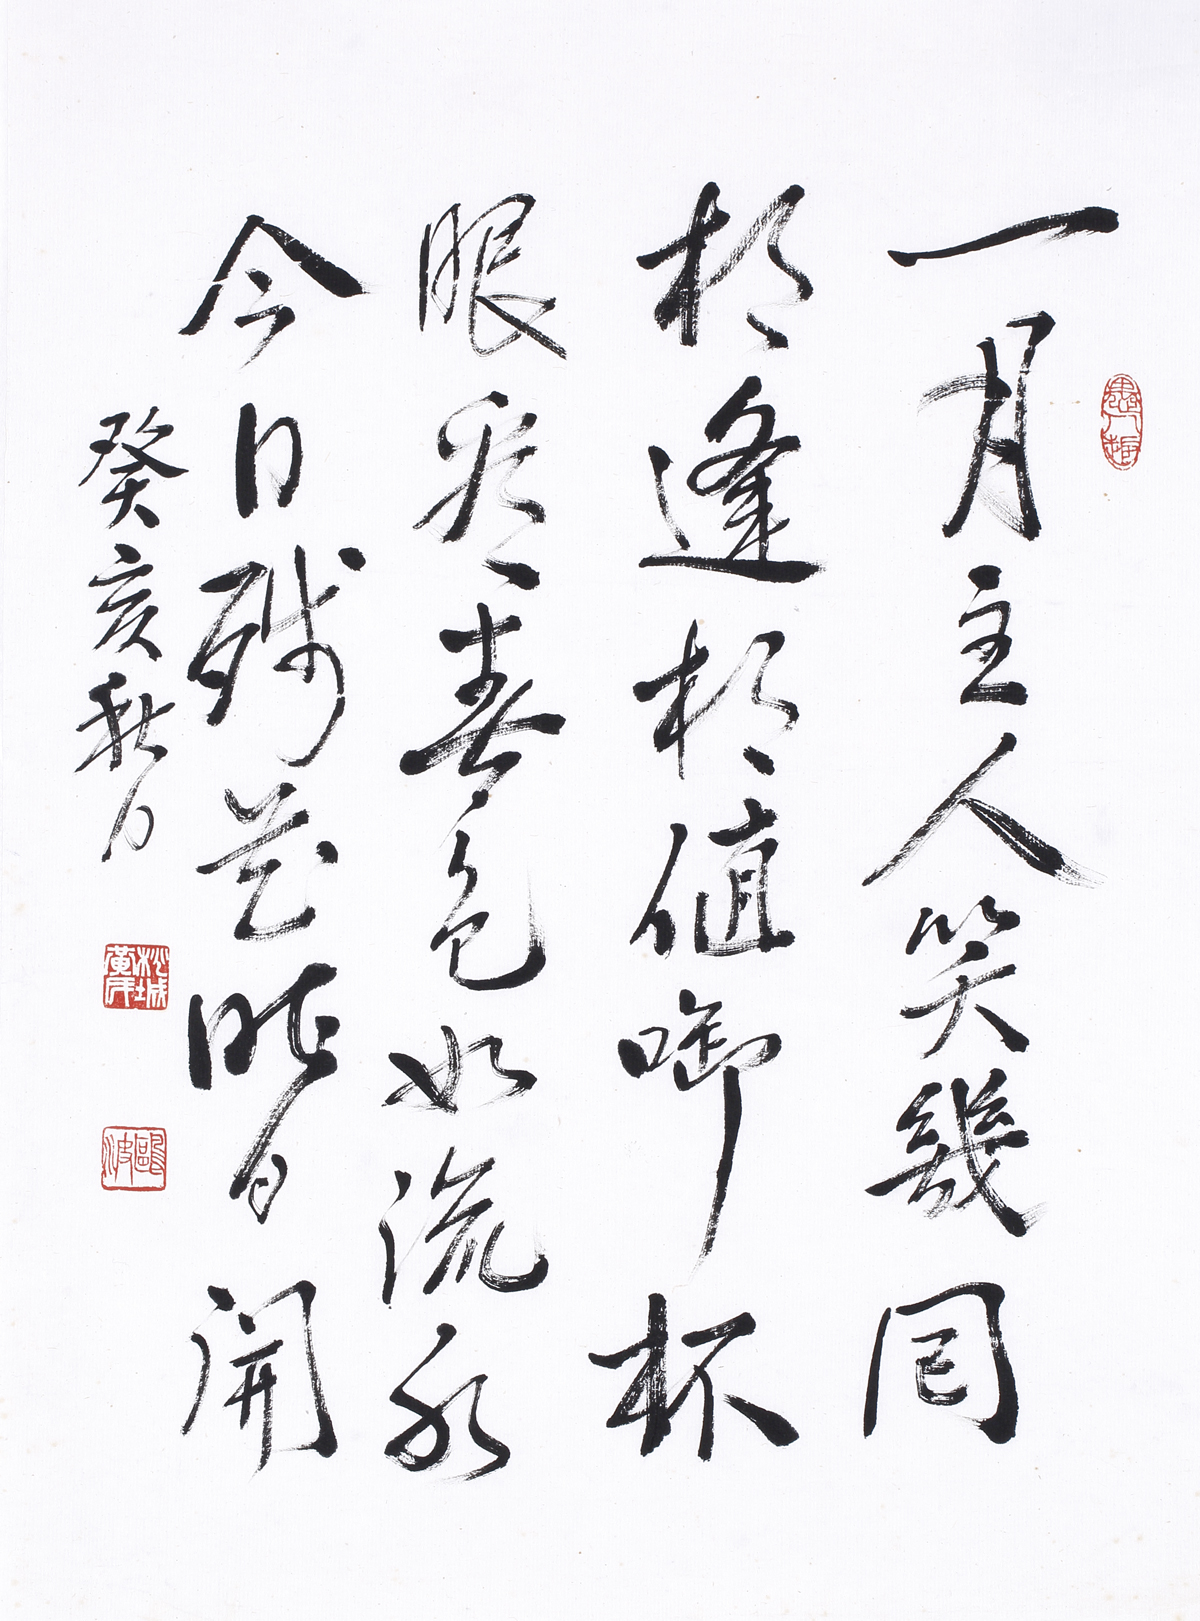 一月主人笑幾囘
相逢相值啣杯
眼看春色如流水
今日殘花昨日開
癸亥秋日